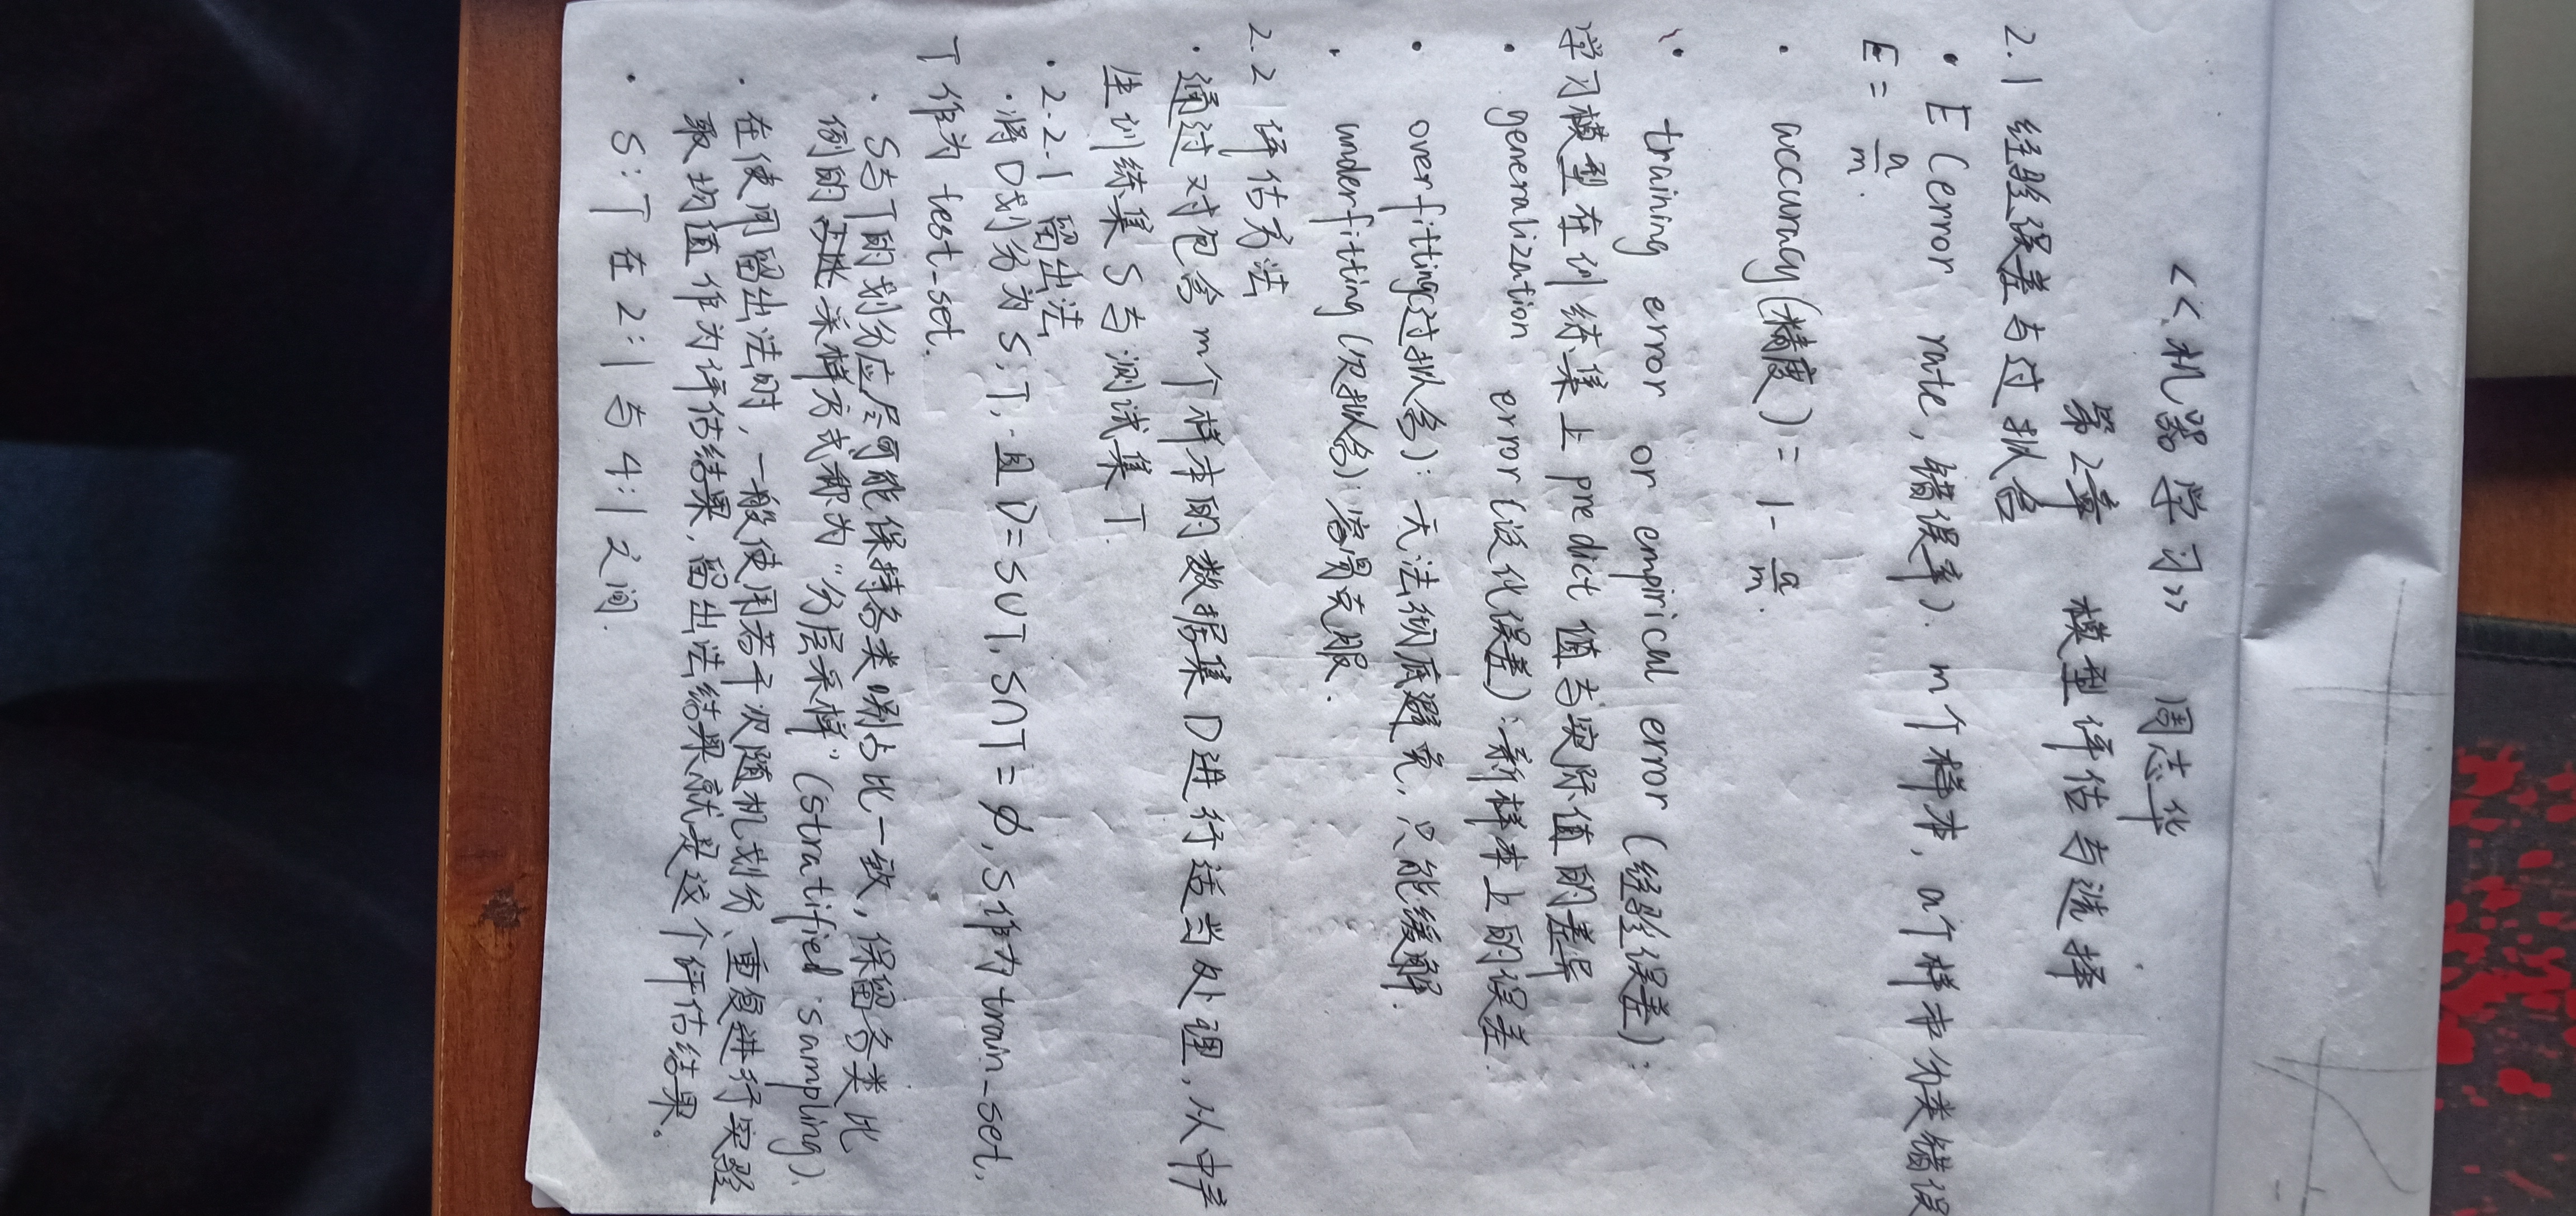 <<机器学习>> 周志华
第2章 模型评估与选择
2.1 经验误差与过拟合
· E (error rate, 错误率). m个样本, a个样本分类错误
E = a/m.
· accuracy(精度) = 1 - a/m.
· training error or empirical error (经验误差):
学习模型在训练集上 predict 值与实际值的差异
· generalization error (泛化误差): 新样本上的误差.
· overfitting(过拟合): 无法彻底避免, 只能缓解.
· underfitting (欠拟合): 容易克服.
2.2 评估方法
· 通过对包含m个样本的数据集D进行适当处理, 从中产
生训练集S与测试集T.
· 2.2.1 留出法
· 将D划分为S, T, 且D=S∪T, S∩T=∅, S作为train_set,
T作为 test_set.
· S与T的划分应尽可能保持各类别占比一致, 保留各类比
例的 采样方式称为"分层采样" (stratified sampling).
· 在使用留出法时, 一般使用若干次随机划分、重复进行实验
取均值作为评估结果, 留出法结果就是这个评估结果。
· S:T 在 2:1 与 4:1 之间.